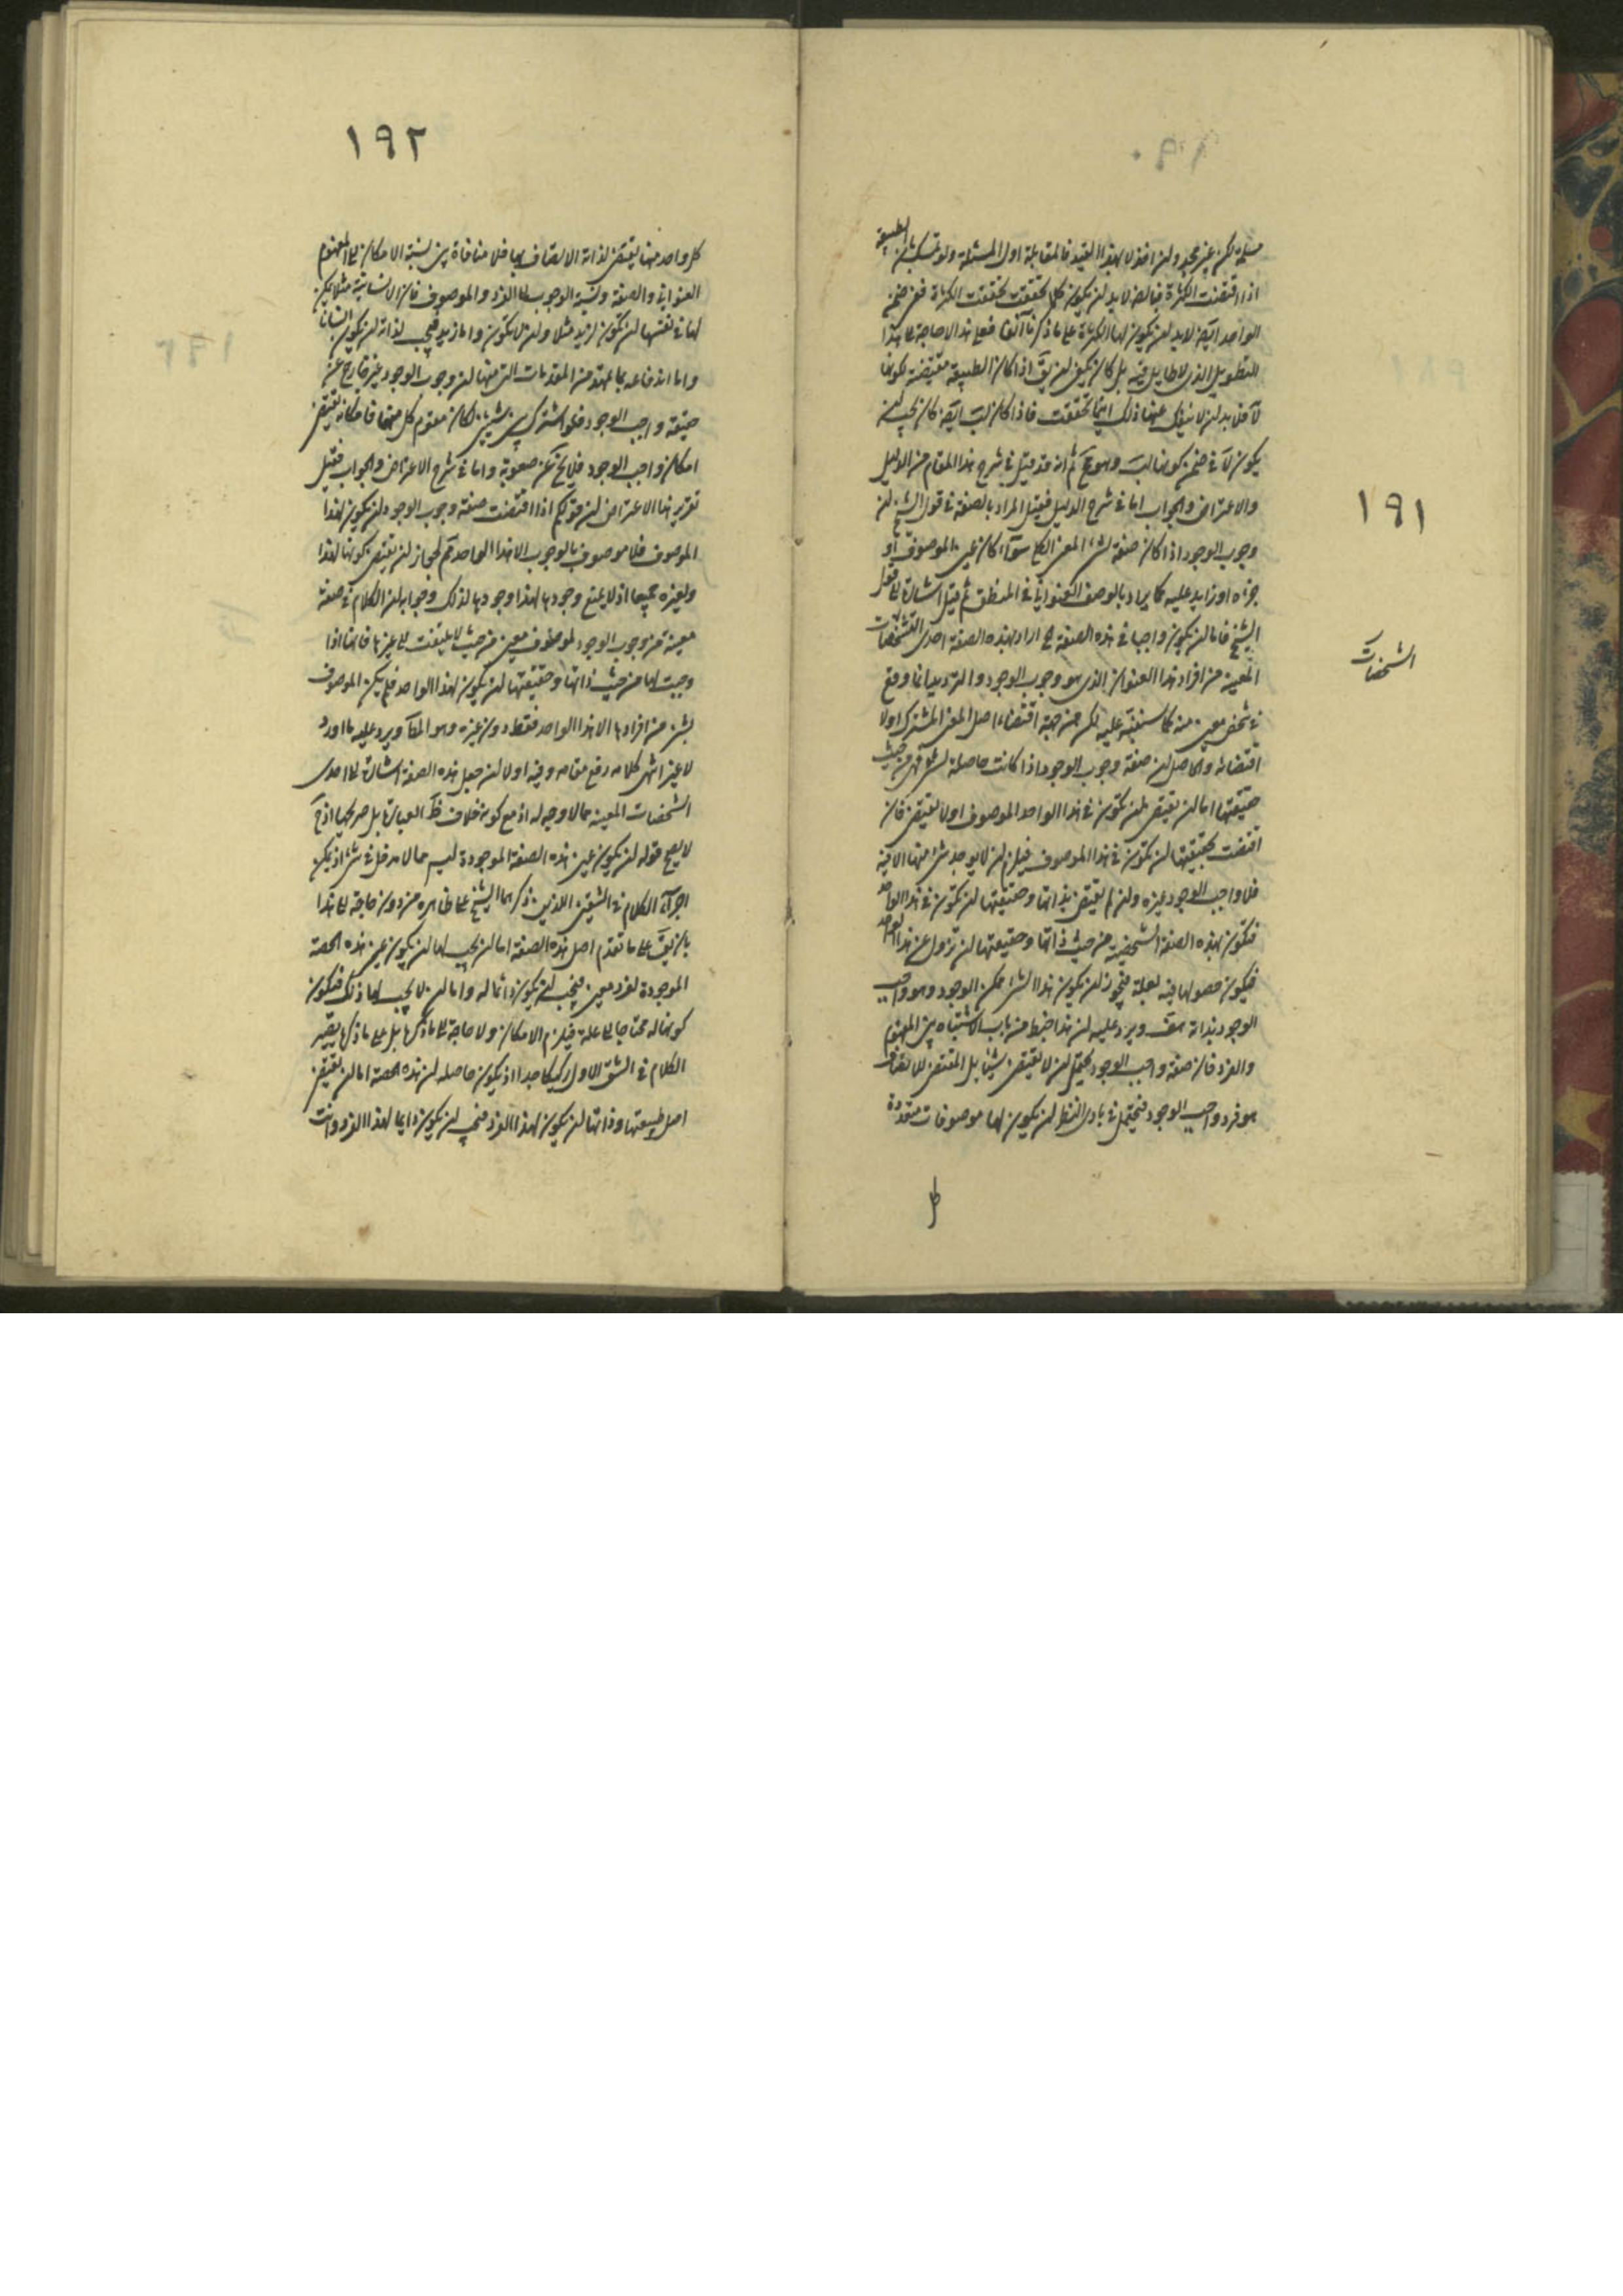 ١٩١
مسلم لكن غير مجد ولن اخذ لا بهذا القيد فالمقابلة اول المسئلة ولو تمسك بان الطبيعة
اذا اقتضت الكثرة فالضرورة لا بد لن يكون كلما تحققت تحققت الكثرة ففي ضمن
الواحد ايضا لا بد لن يكون لها الكثرة على ما ذكرنا آنفا فعلى هذا لا حاجة الى هذا
التطويل الذى لا طايل فيه بل كان يكفى لن يق اذا كان الطبيعة مقتضية لكونها
لآ فلا بد لن لا ينفك عنها ذلك اينما تحققت فاذا كان ايضا كان يجب لن
يكون لآ فى ضمن كونها لب وهو مح ثم انه قد قيل فى شرح هذا المقام من الدليل
والاعتراض والجواب اما فى شرح الدليل فقيل المراد بالصفة فى قول الشيخ لن
وجوب الوجود اذا كان صفة لشئ المعنى الكلى سوآء كان عين الموصوف او
جزءه او زايد عليه كما يراد بالوصف العنوانى فى المنطق ثم قيل اشارة الى قول
الشيخ فاما لن يكون واجبا فى هذه الصفة اراد بهذه الصفة احدى التشخصات
الشخصات
المعين من افراد هذا العنوان الذى هو وجوب الوجود والترديد انما وقع
فى شخص معين منه كما سننبه عليه لكن من جهة اقتضاء اصل المعنى المشترك اولا
اقتضائه والحاصل لن صفة وجوب الوجود اذا كانت حاصلة لشئ فهى من حيث
حقيقتها اما لن تقتضى لن تكون فى هذا الواحد الموصوف اولا تقتضى فان
اقتضت بحقيقتها لن تكون فى هذا الموصوف فيلزم لن لا يوجد شئ منها الا فيه
فلا واجب الوجود غيره ولن لم يقتضى بذاتها وحقيقتها لن تكون فى هذا الواحد
فتكون هذه الصفة الشخصية من حيث ذاتها وحقيقتها لن تزول عن هذا الواحد
فيكون حصولها فيه لعلة فيجوز لن يكون هذا الشئ ممكن الوجود وهو واجب
الوجود بذاته هف ويرد عليه لن هذا خبط من باب الاشتباه بين المفهوم
والفرد فان صفة واجب الوجود يحتمل لن لا يقتضى شيئا بل المقتضى للاتصاف
هو فرد واجب الوجود فيحتمل فى بادى النظر لن يكون لها موصوفات متعددة
١٩٢
كل واحد منها يقتضى لذاته الاتصاف بها فلا منافاة بين نسبة الامكان الى المفهوم
العنوانى والصفة ونسبة الوجوب الى الفرد والموصوف فان الانسانية مثلا يمكن
لها فى نفسها لن تكون لزيد مثلا ولن لا تكون واما زيد فيجب لذاته لن يكون انسانا
واما اندفاعه بما تمهد من المقدمات التى منها لن وجوب الوجود غير خارج عن
حقيقة واجب الوجود فلو اشترك بين شيئين لكان مقوم كل منهما فامكانه يقتضى
امكان واجب الوجود فلا يخ عن صعوبة واما فى شرح الاعتراض والجواب فقيل
تقرير هذا الاعتراض لن قولكم اذا اقتضت صفة وجوب الوجود لن يكون لهذا
الموصوف فلا موصوف بالوجوب الا هذا الواحد مم لجواز لن يقتضى كونها لهذا
ولغيره جميعا اذ لا يمنع وجودها لهذا وجودها لذلك وجوابه لن الكلام فى صفة
معينة من وجوب الوجود لموصوف معين من حيث لا يلتفت الى غيرها فانها اذا
وجبت لها من حيث ذاتها وحقيقتها لن يكون لهذا الواحد فلم يكن الموصوف
بشئ من افرادها الا هذا الواحد فقط دون غيره وهو المط ويرد عليه ما اورد
لا غير انتهى كلامه رفع مقامه وفيه اولا لن جعل هذه الصفة اشارة الى احدى
الشخصات المعينة مما لا وجه له اذ مع كونه خلاف ظ العبارة بل صريحها اذ ح
لا يصح قوله لن يكون عين هذه الصفة الموجودة ليس مما لا مدخل فى شئ اذ يمكن
اجرآء الكلام فى الشقين اللذين ذكرهما الشيخ على ظاهره من دون حاجة الى هذا
بان يق على ما تقدم اصل هذه الصفة اما لن يجب لها لن يكون عين هذه الحصة
الموجودة لفرد معين فيجب لن يكون دائما له واما لن لا يجب لها ذلك فيكون
كونها له محتاجا الى علة فيلزم الامكان ولا حاجة الى ما ذكرها بل على ما ذكرها يصير
الكلام فى الشق الاول ركيكا جدا اذ يكون حاصله لن هذه الحصة اما لن يقتضى
اصل طبيعتها وذاتها لن يكون لهذا الفرد فيجب لن يكون دايما لهذا الفرد وانت